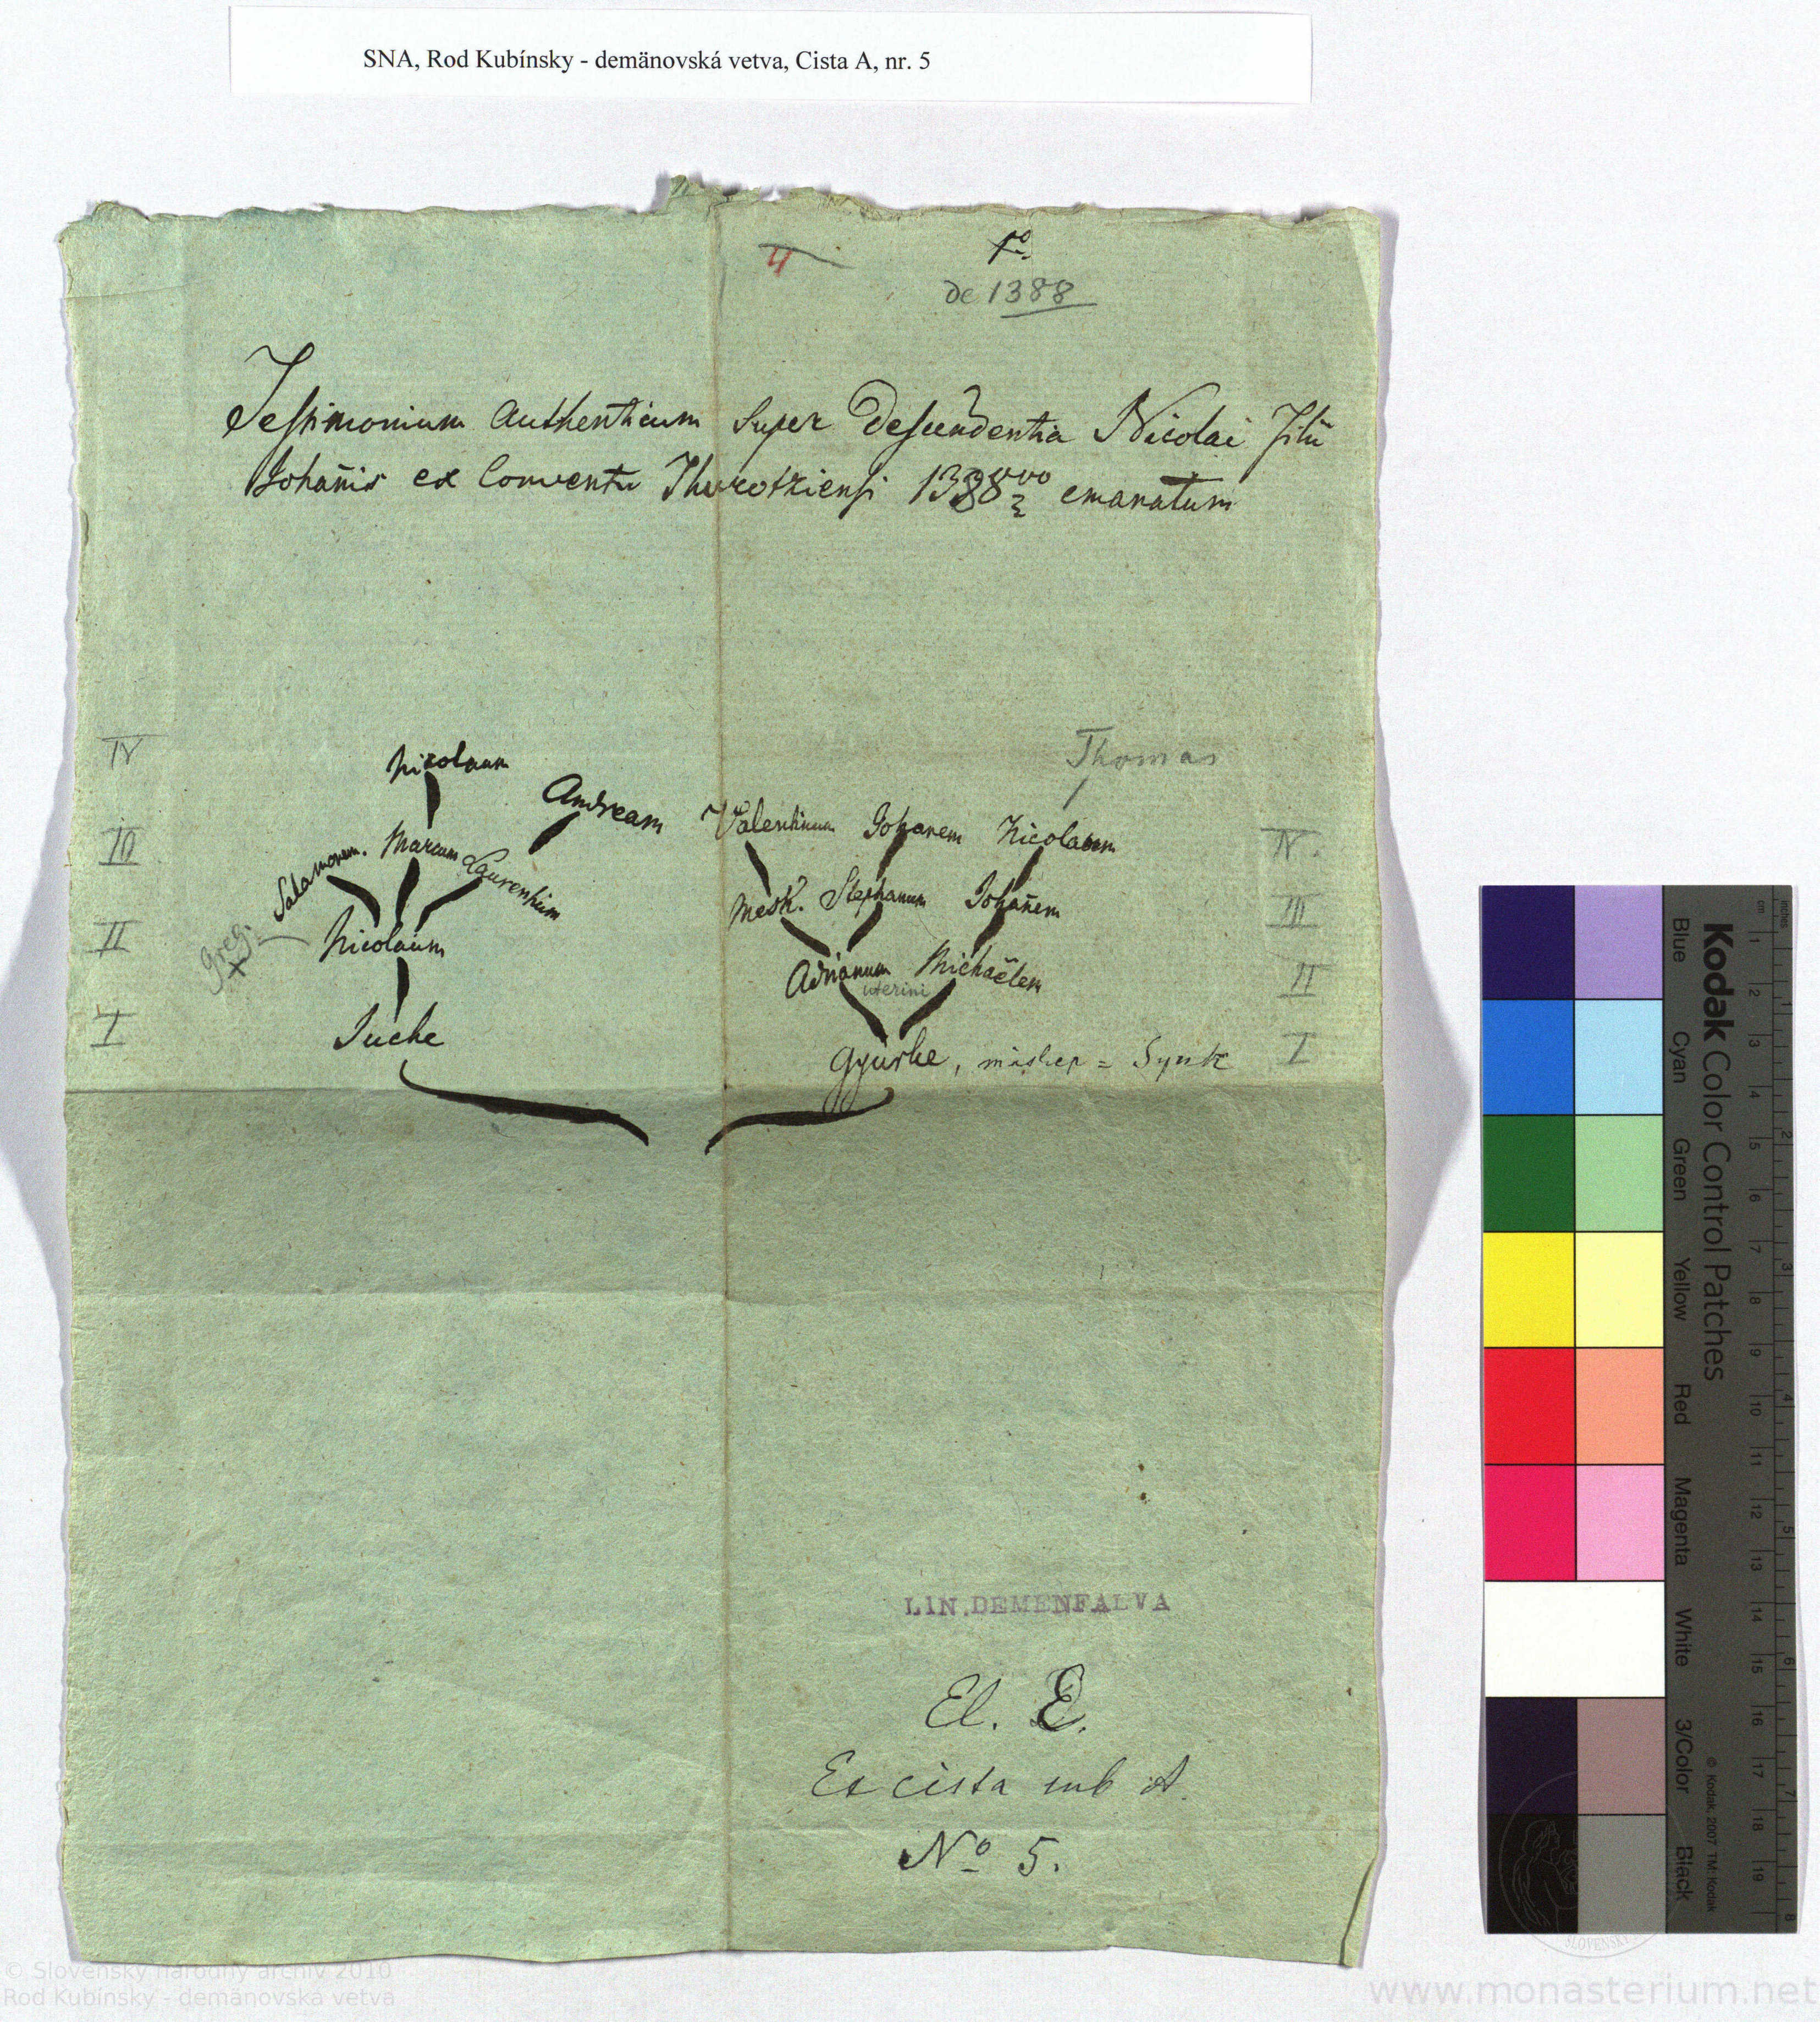 SNA, Rod Kubínsky - demänovská vetva, Cista A, nr. 5
4
1º
de 1388
Testimonium authenticum super descendentia Nicolai Filii
Johañis ex Conventu Thurotziensi 1388vo emanatum
IV
Nicolaum
Andream
Thomas
III
Salamonem. Marcum Laurentium
Valentinum Johanem Nicolaum
IV.
II
Greg.
Nicolaum
Mesk. Stephanum Johañem
III
Adrianum Michaëlem
uterini
II
I
Suche
Gyurke, = Synk
I
LIN.DEMENFALVA
El. E.
Ex cista sub A.
Nº 5.
Kodak Color Control Patches
Blue Cyan Green Yellow Red Magenta White 3/Color Black
© Kodak, 2007 TM: Kodak
cm 1 2 3 4 5 6 7 8 9 10 11 12 13 14 15 16 17 18 19
inches 1 2 3 4 5 6 7 8
SLOVENSK
© Slovenský národný archív 2010
Rod Kubínsky - demänovská vetva
www.monasterium.net